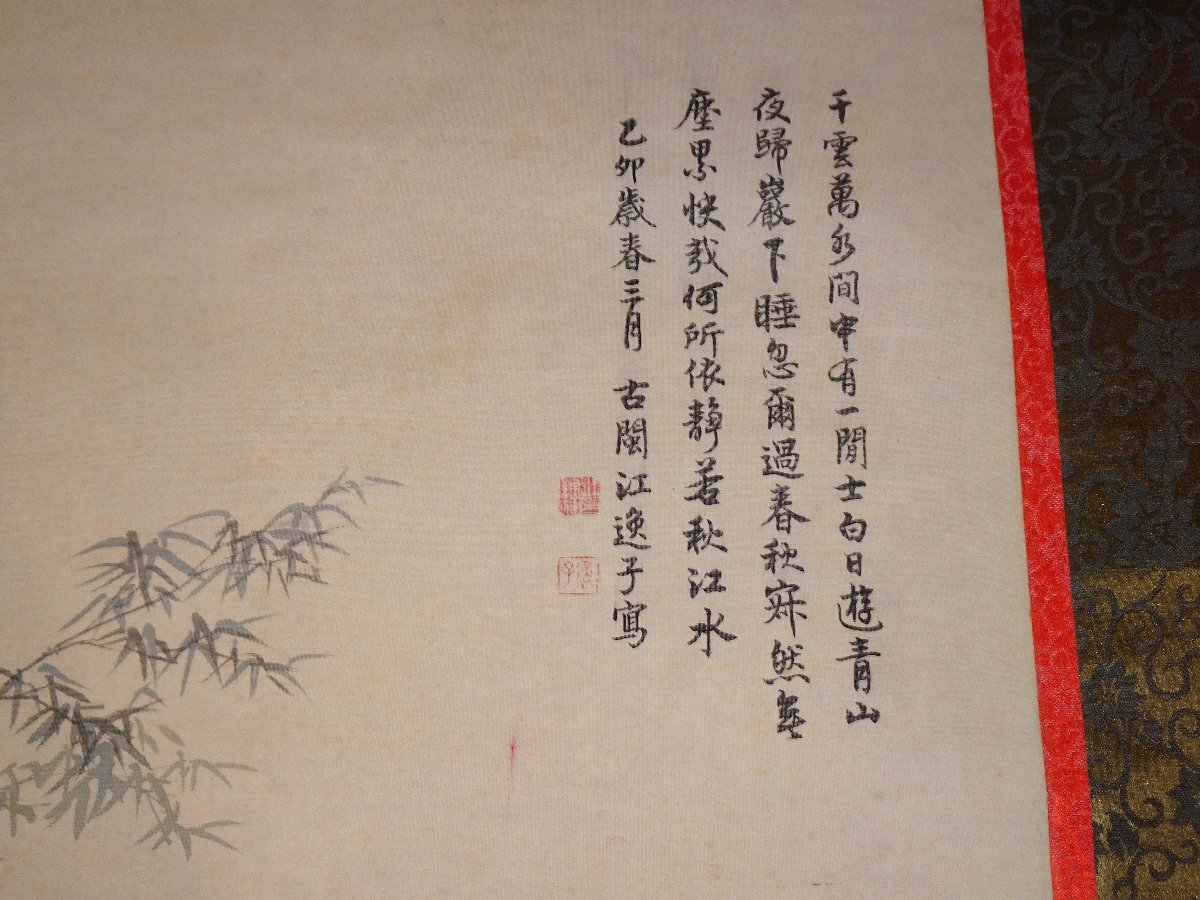 千雲萬水間中有一閒士白日遊青山
夜歸巖下睡忽爾過春秋寂然無
塵累快哉何所依靜若秋江水
己卯歲春三月 古閩江逸子寫